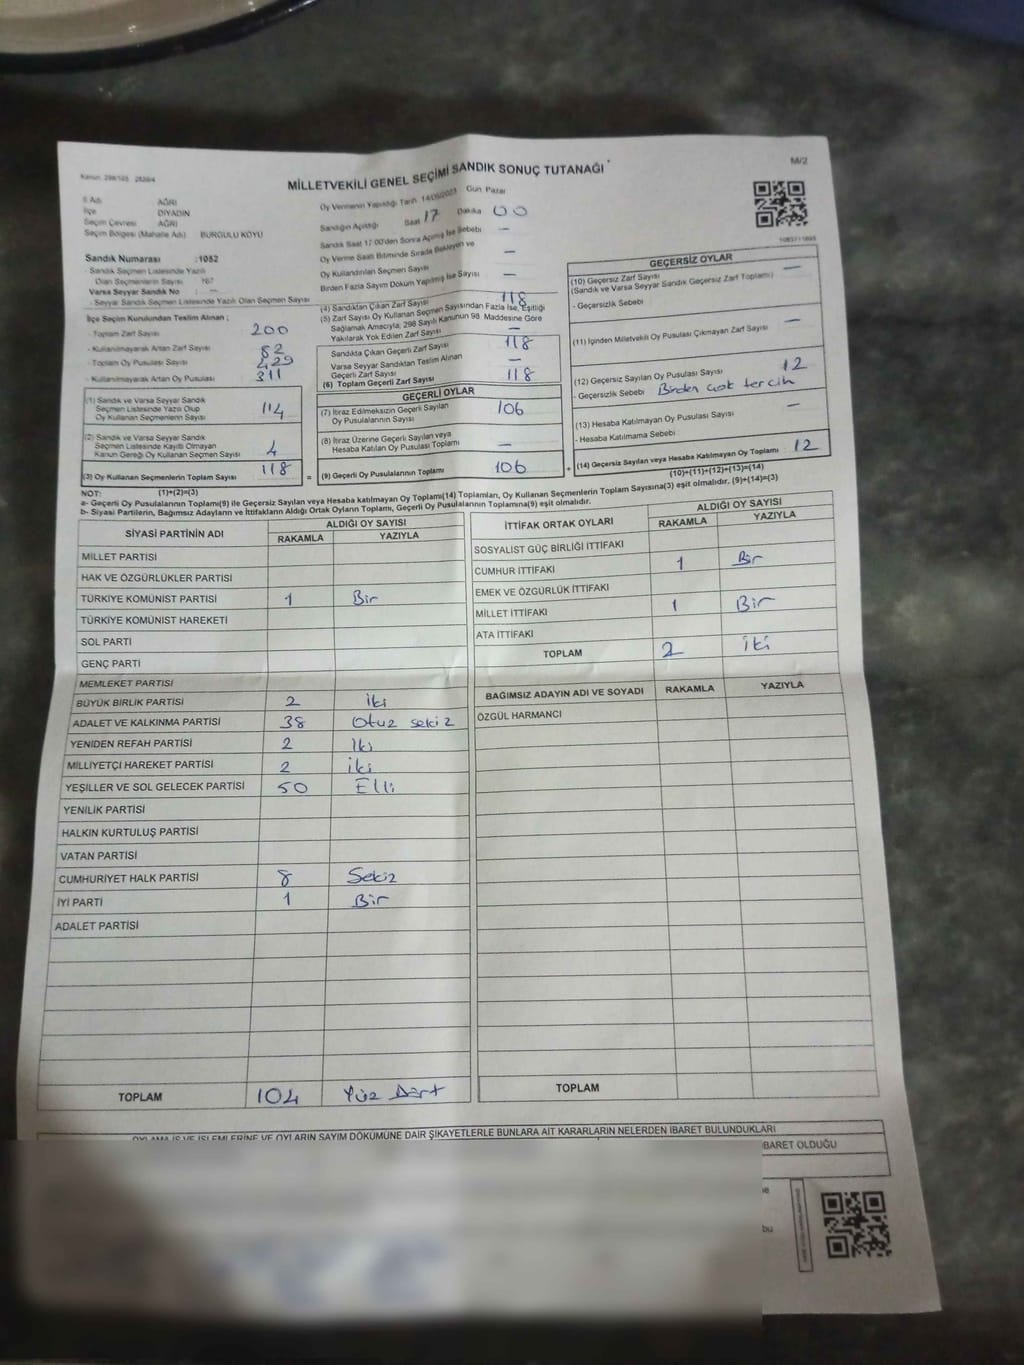 M/2
MİLLETVEKİLİ GENEL SEÇİMİ SANDIK SONUÇ TUTANAĞI
İl Adı AĞRI
İlçe DİYADİN
Seçim Çevresi AĞRI
Seçim Bölgesi (Mahalle Adı) BURGULU KÖYÜ
Sandık Numarası :1052
- Sandık Seçmen Listesinde Yazılı
Olan Seçmenlerin Sayısı 167
Varsa Seyyar Sandık No : —
- Seyyar Sandık Seçmen Listesinde Yazılı Olan Seçmen Sayısı
Oy Vermenin Yapıldığı Tarih 14/05/2023 Gün Pazar
Sandığın Açıldığı Saat 17 Dakika 00
Sandık Saat 17.00'den Sonra Açılmış İse Sebebi —
Oy Verme Saati Bitiminde Sırada Bekleyen ve
Oy Kullandırılan Seçmen Sayısı —
Birden Fazla Sayım Döküm Yapılmış İse Sayısı —
İlçe Seçim Kurulundan Teslim Alınan ;
- Toplam Zarf Sayısı 200
- Kullanılmayarak Artan Zarf Sayısı 82
- Toplam Oy Pusulası Sayısı 429
- Kullanılmayarak Artan Oy Pusulası 311
(1) Sandık ve Varsa Seyyar Sandık
Seçmen Listesinde Yazılı Olup
Oy Kullanan Seçmenlerin Sayısı 114
(2) Sandık ve Varsa Seyyar Sandık
Seçmen Listesinde Kayıtlı Olmayan
Kanun Gereği Oy Kullanan Seçmen Sayısı 4
(3) Oy Kullanan Seçmenlerin Toplam Sayısı 118
(4) Sandıktan Çıkan Zarf Sayısı 118
(5) Zarf Sayısı Oy Kullanan Seçmen Sayısından Fazla İse, Eşitliği
Sağlamak Amacıyla, 298 Sayılı Kanunun 98. Maddesine Göre
Yakılarak Yok Edilen Zarf Sayısı —
Sandıkta Çıkan Geçerli Zarf Sayısı 118
Varsa Seyyar Sandıktan Teslim Alınan
Geçerli Zarf Sayısı —
(6) Toplam Geçerli Zarf Sayısı 118
GEÇERLİ OYLAR
(7) İtiraz Edilmeksizin Geçerli Sayılan
Oy Pusulalarının Sayısı 106
(8) İtiraz Üzerine Geçerli Sayılan veya
Hesaba Katılan Oy Pusulası Toplamı —
= (9) Geçerli Oy Pusulalarının Toplamı 106 +
GEÇERSİZ OYLAR
(10) Geçersiz Zarf Sayısı —
(Sandık ve Varsa Seyyar Sandık Geçersiz Zarf Toplamı)
- Geçersizlik Sebebi
(11) İçinden Milletvekili Oy Pusulası Çıkmayan Zarf Sayısı —
(12) Geçersiz Sayılan Oy Pusulası Sayısı 12
- Geçersizlik Sebebi Birden çok tercih
(13) Hesaba Katılmayan Oy Pusulası Sayısı —
- Hesaba Katılmama Sebebi
(14) Geçersiz Sayılan veya Hesaba Katılmayan Oy Toplamı : 12
NOT: (1)+(2)=(3)
(10)+(11)+(12)+(13)=(14)
a- Geçerli Oy Pusulalarının Toplamı(9) ile Geçersiz Sayılan veya Hesaba katılmayan Oy Toplamı(14) Toplamları, Oy Kullanan Seçmenlerin Toplam Sayısına(3) eşit olmalıdır. (9)+(14)=(3)
b- Siyasi Partilerin, Bağımsız Adayların ve İttifakların Aldığı Ortak Oyların Toplamı, Geçerli Oy Pusulalarının Toplamına(9) eşit olmalıdır.
SİYASİ PARTİNİN ADI ALDIĞI OY SAYISI
RAKAMLA YAZIYLA
MİLLET PARTİSİ
HAK VE ÖZGÜRLÜKLER PARTİSİ
TÜRKİYE KOMÜNİST PARTİSİ 1 Bir
TÜRKİYE KOMÜNİST HAREKETİ
SOL PARTİ
GENÇ PARTİ
MEMLEKET PARTİSİ
BÜYÜK BİRLİK PARTİSİ 2 iki
ADALET VE KALKINMA PARTİSİ 38 Otuz sekiz
YENİDEN REFAH PARTİSİ 2 İki
MİLLİYETÇİ HAREKET PARTİSİ 2 iki
YEŞİLLER VE SOL GELECEK PARTİSİ 50 Elli
YENİLİK PARTİSİ
HALKIN KURTULUŞ PARTİSİ
VATAN PARTİSİ
CUMHURİYET HALK PARTİSİ 8 Sekiz
İYİ PARTİ 1 Bir
ADALET PARTİSİ
TOPLAM 104 Yüz Dört
İTTİFAK ORTAK OYLARI ALDIĞI OY SAYISI
RAKAMLA YAZIYLA
SOSYALİST GÜÇ BİRLİĞİ İTTİFAKI
CUMHUR İTTİFAKI 1 Bir
EMEK VE ÖZGÜRLÜK İTTİFAKI
MİLLET İTTİFAKI 1 Bir
ATA İTTİFAKI
TOPLAM 2 iki
BAĞIMSIZ ADAYIN ADI VE SOYADI RAKAMLA YAZIYLA
ÖZGÜL HARMANCI
TOPLAM
OYLAMA İŞ VE İŞLEMLERİNE VE OYLARIN SAYIM DÖKÜMÜNE DAİR ŞİKAYETLERLE BUNLARA AİT KARARLARIN NELERDEN İBARET BULUNDUKLARI
İBARET OLDUĞU